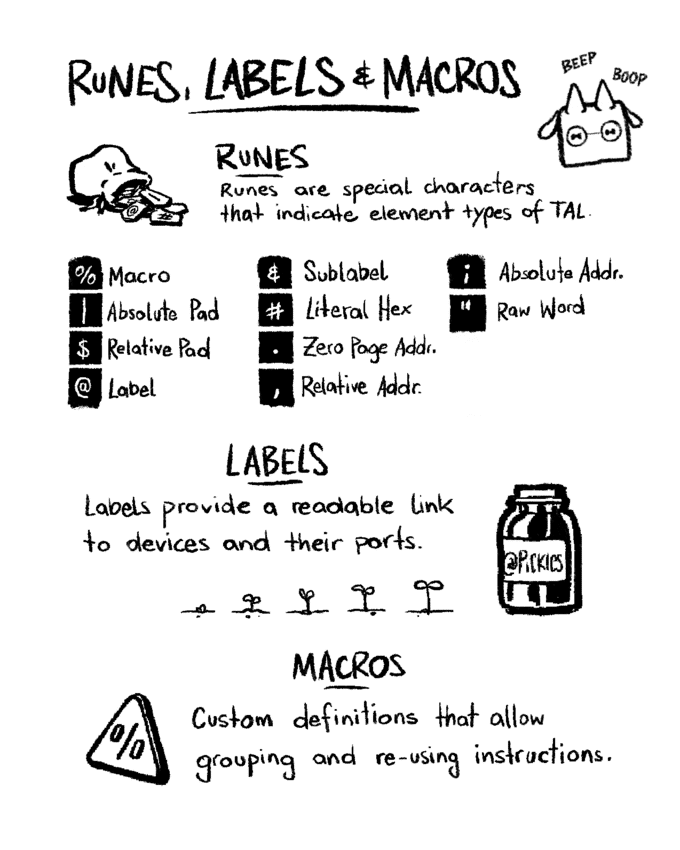 RUNES, LABELS & MACROS
BEEP
BOOP
RUNES
Runes are special characters
that indicate element types of TAL.
% Macro
| Absolute Pad
$ Relative Pad
@ Label
& Sublabel
# Literal Hex
. Zero Page Addr.
, Relative Addr.
; Absolute Addr.
" Raw Word
LABELS
Labels provide a readable link
to devices and their ports.
@PiCKlES
MACROS
%
Custom definitions that allow
grouping and re-using instructions.